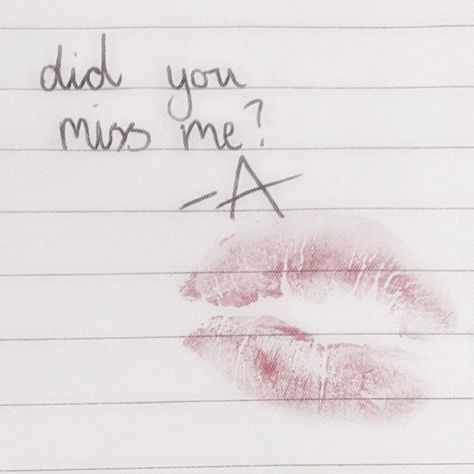 did you
miss me?
-A